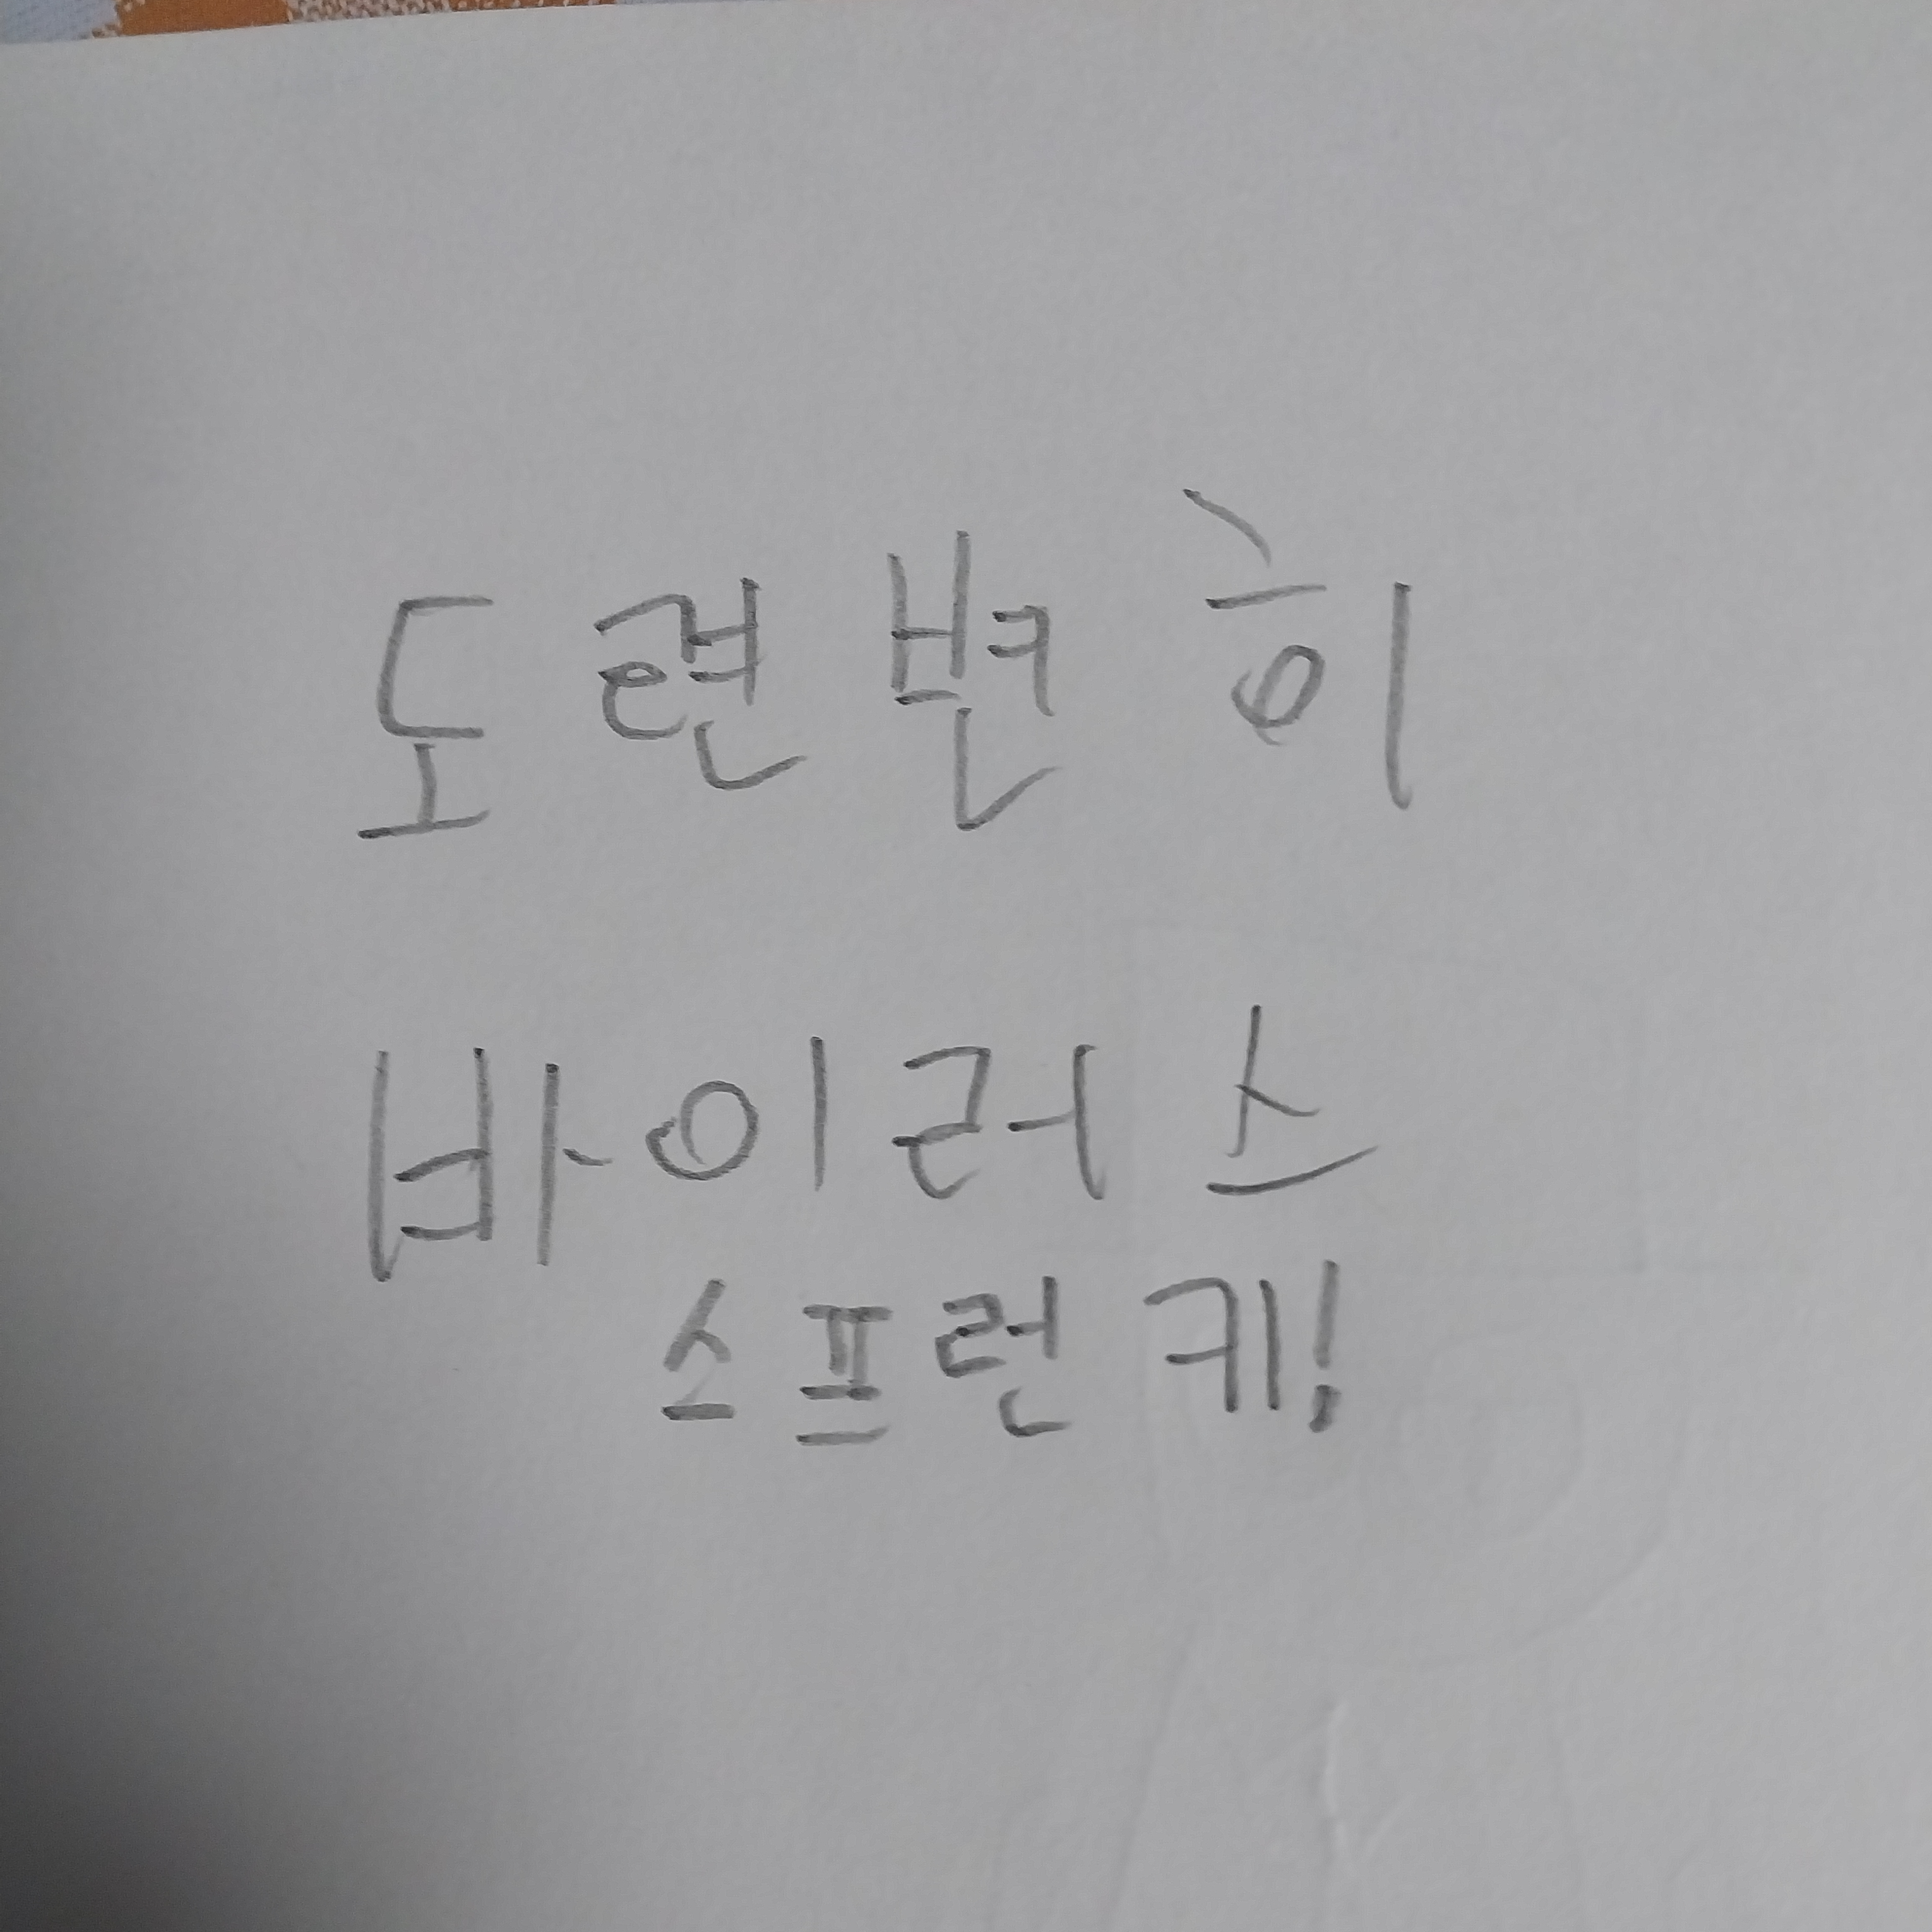 도련변이
바이러스
스프런키!